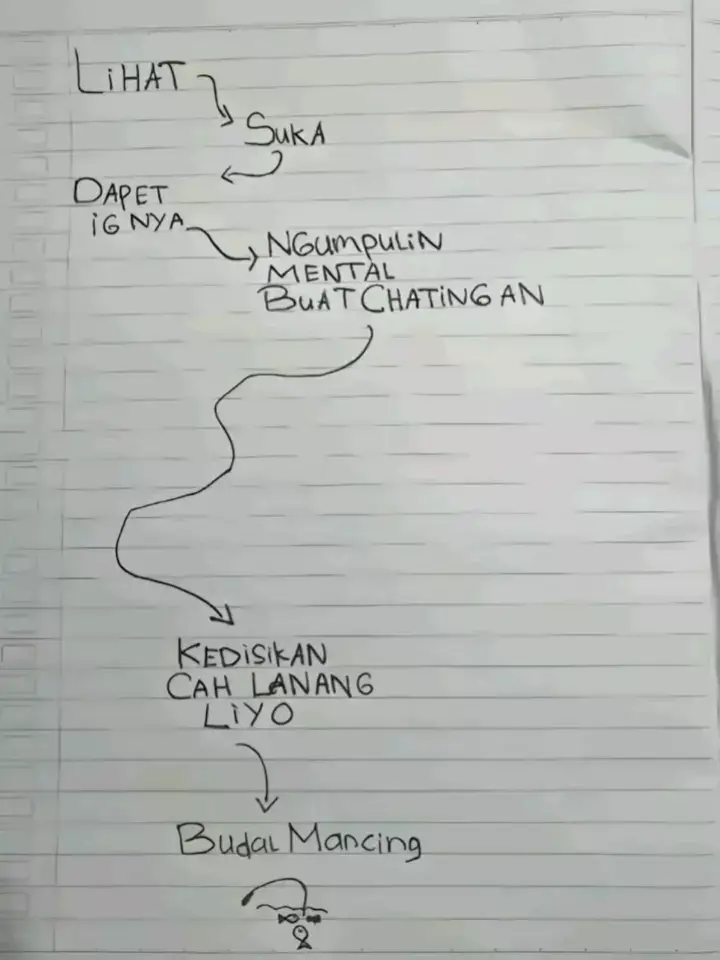 LiHAT
SUKA
DAPET
iGNYA
NGUmPULiN
MENTAL
BUAT CHATiNGAN
KEDiSiKAN
CAH LANANG
LiYO
Budal Mancing